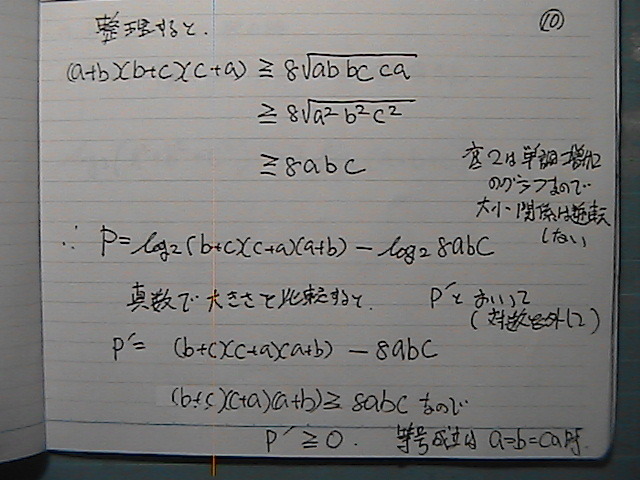 ⑩
整理すると.
(a+b)(b+c)(c+a) ≧ 8√ab bc ca
≧ 8√a² b² c²
≧ 8abc
底2は単調増加
のグラフなので
大小関係は逆転
しない
∴ P = log₂(b+c)(c+a)(a+b) − log₂ 8abc
真数で大きさを比較すると. P´とおいて
(対数を外して)
P´= (b+c)(c+a)(a+b) − 8abc
(b+c)(c+a)(a+b) ≧ 8abc なので
P´ ≧ 0. 等号成立は a=b=cの時.